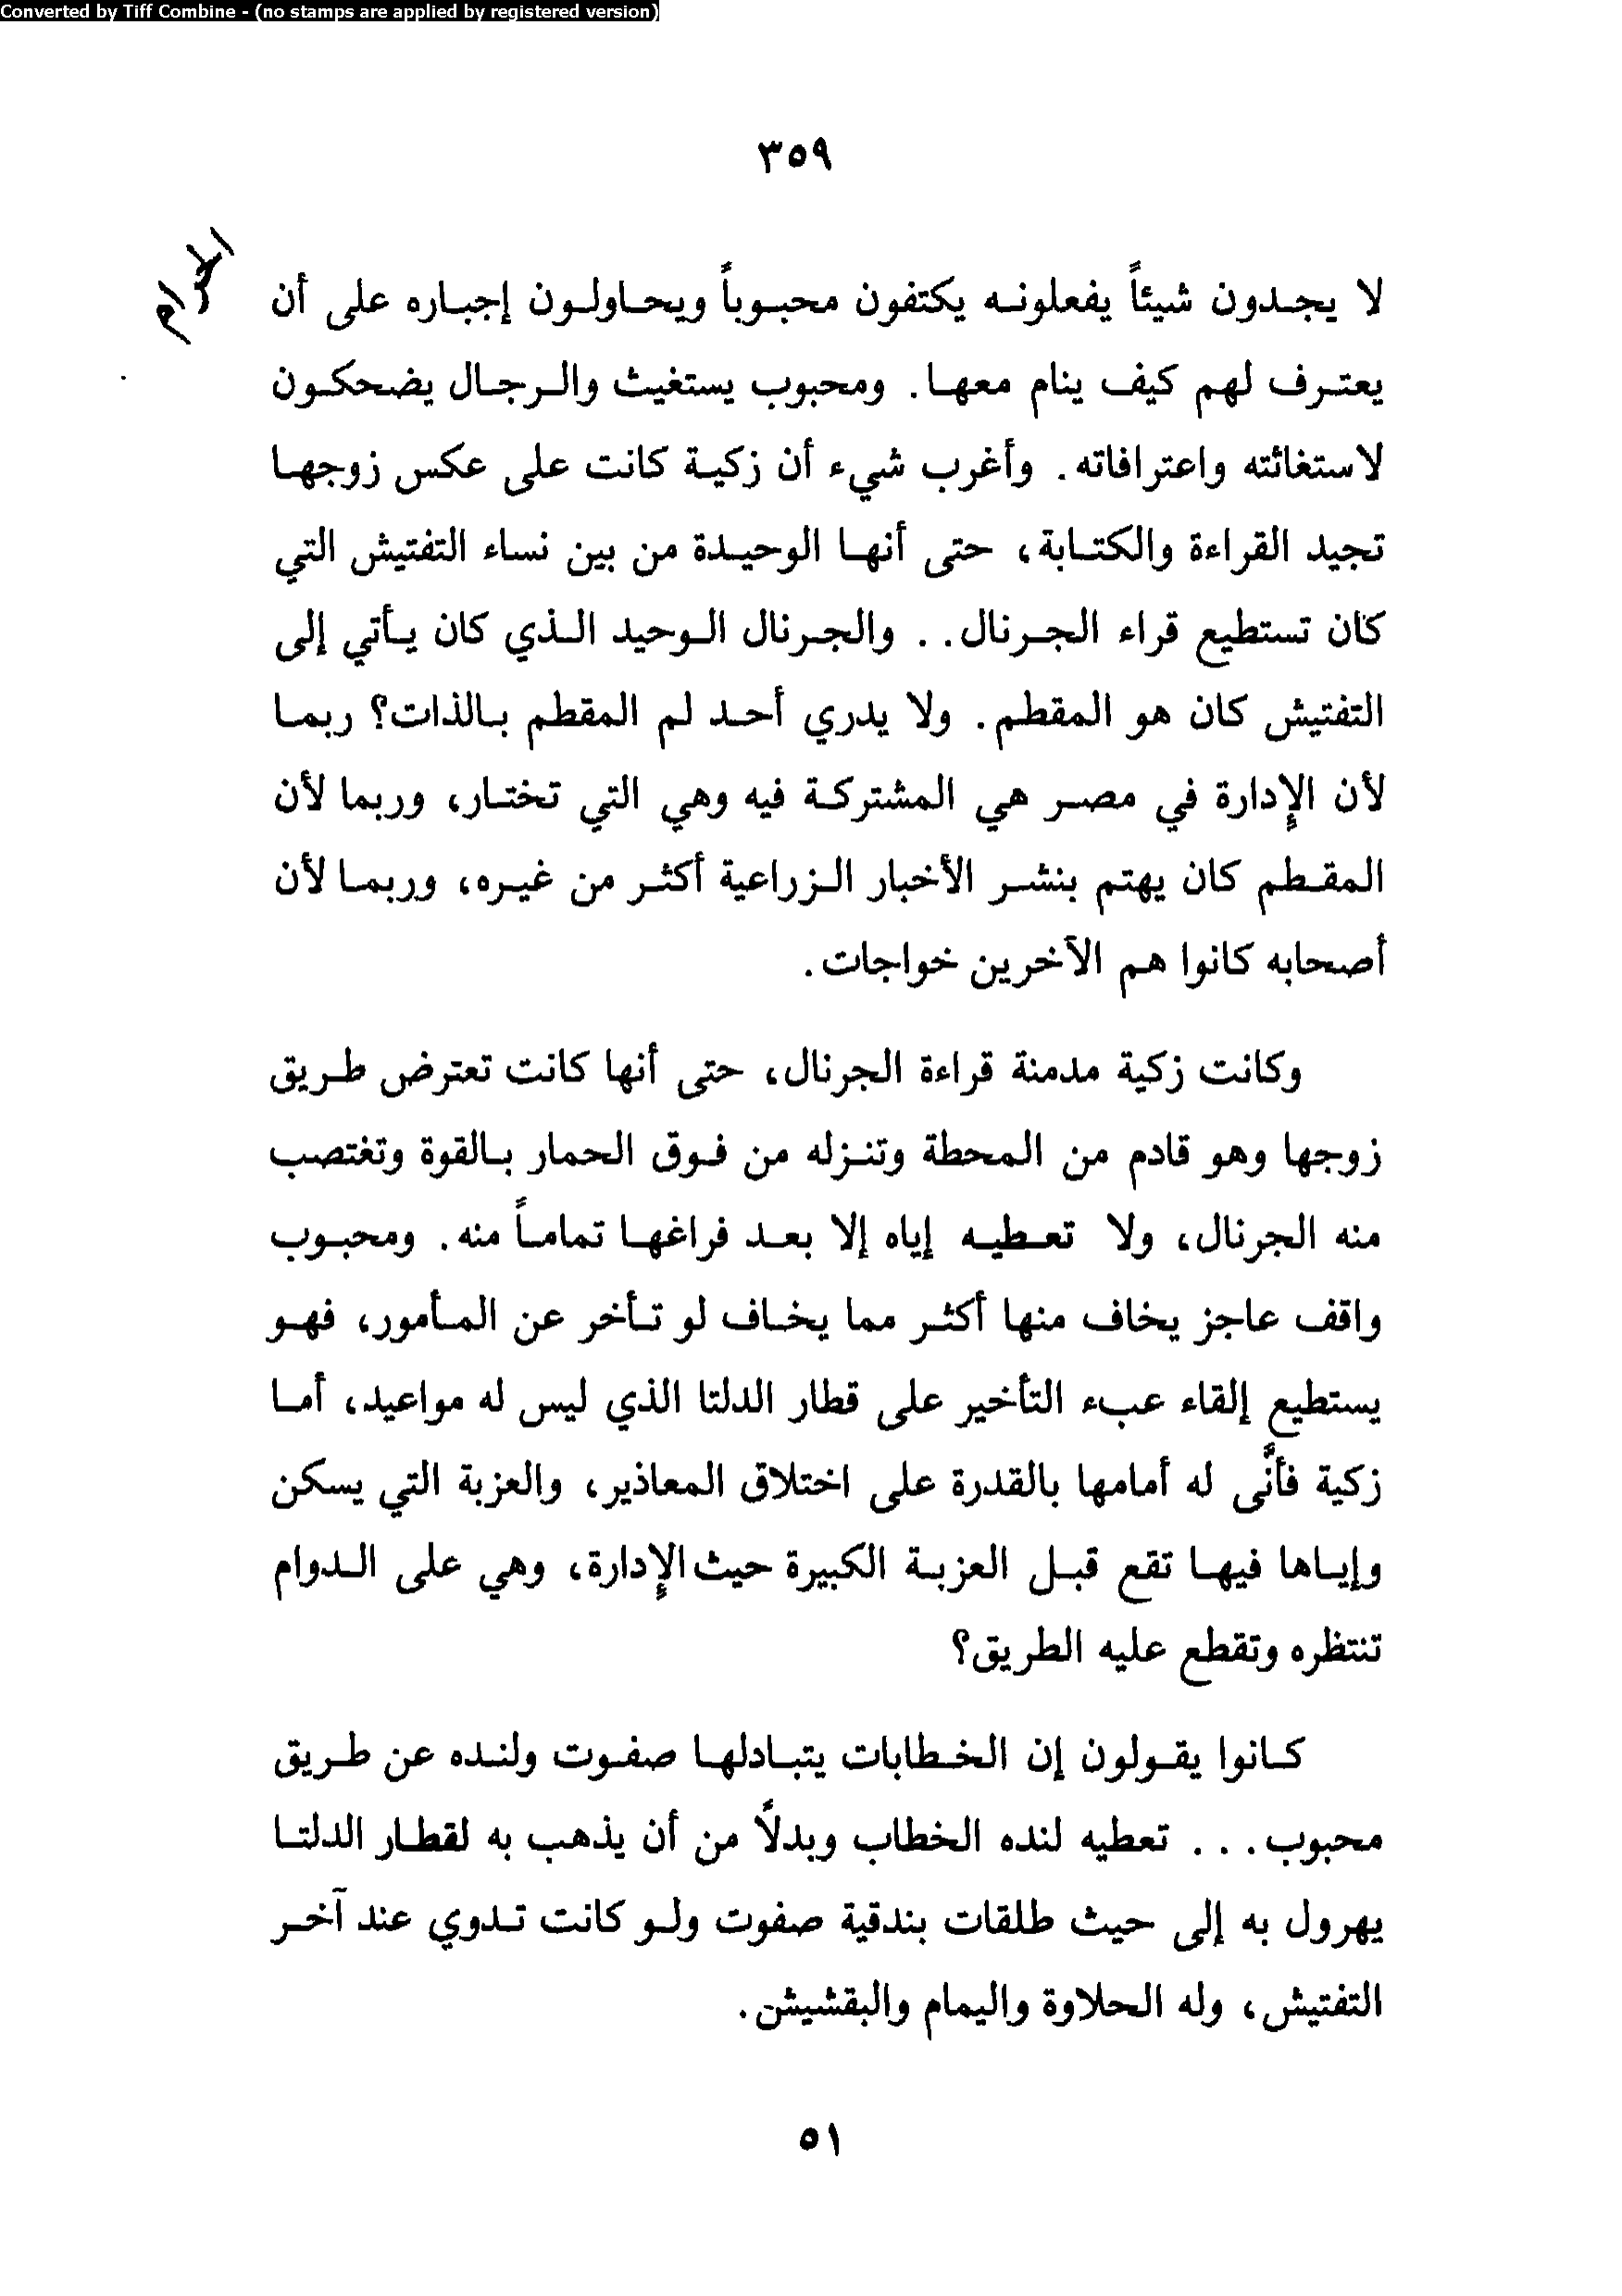 Converted by Tiff Combine - (no stamps are applied by registered version)
٣٥٩
الحرام
لا يجدون شيئاً يفعلونه يكتفون محبوباً ويحاولون إجباره على أن
يعترف لهم كيف ينام معها. ومحبوب يستغيث والرجال يضحكون
لاستغاثته واعترافاته. وأغرب شيء أن زكية كانت على عكس زوجها
تجيد القراءة والكتابة، حتى أنها الوحيدة من بين نساء التفتيش التي
كان تستطيع قراء الجرنال.. والجرنال الوحيد الذي كان يأتي إلى
التفتيش كان هو المقطم. ولا يدري أحد لم المقطم بالذات؟ ربما
لأن الإدارة في مصر هي المشتركة فيه وهي التي تختار، وربما لأن
المقطم كان يهتم بنشر الأخبار الزراعية أكثر من غيره، وربما لأن
أصحابه كانوا هم الآخرين خواجات.
وكانت زكية مدمنة قراءة الجرنال، حتى أنها كانت تعترض طريق
زوجها وهو قادم من المحطة وتنزله من فوق الحمار بالقوة وتغتصب
منه الجرنال، ولا تعطيه إياه إلا بعد فراغها تماماً منه. ومحبوب
واقف عاجز يخاف منها أكثر مما يخاف لو تأخر عن المأمور، فهو
يستطيع إلقاء عبء التأخير على قطار الدلتا الذي ليس له مواعيد، أما
زكية فأنَّى له أمامها بالقدرة على اختلاق المعاذير، والعزبة التي يسكن
وإياها فيها تقع قبل العزبة الكبيرة حيث الإدارة، وهي على الدوام
تنتظره وتقطع عليه الطريق؟
كانوا يقولون إن الخطابات يتبادلها صفوت ولنده عن طريق
محبوب... تعطيه لنده الخطاب وبدلاً من أن يذهب به لقطار الدلتا
يهرول به إلى حيث طلقات بندقية صفوت ولو كانت تدوي عند آخر
التفتيش، وله الحلاوة واليمام والبقشيش.
٥١